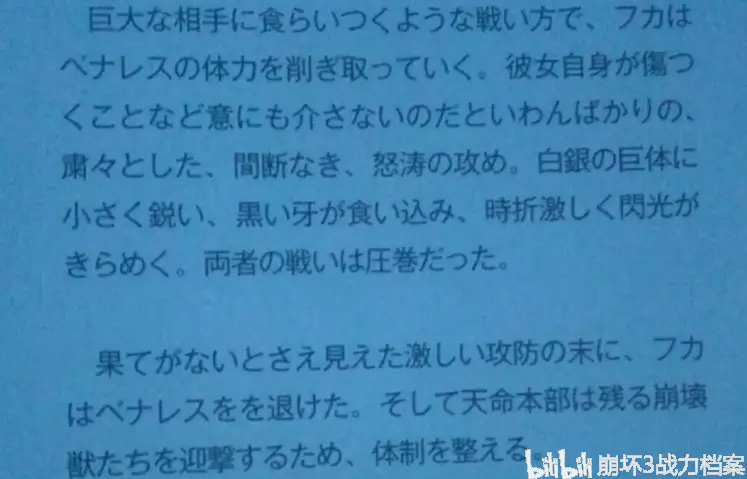 巨大な相手に食らいつくような戦い方で、フカは
ベナレスの体力を削ぎ取っていく。彼女自身が傷つ
くことなど意にも介さないのだといわんばかりの、
粛々とした、間断なき、怒涛の攻め。白銀の巨体に
小さく鋭い、黒い牙が食い込み、時折激しく閃光が
きらめく。両者の戦いは圧巻だった。
果てがないとさえ見えた激しい攻防の末に、フカ
はベナレスをを退けた。そして天命本部は残る崩壊
獣たちを迎撃するため、体制を整える。
bilibili 崩坏3战力档案